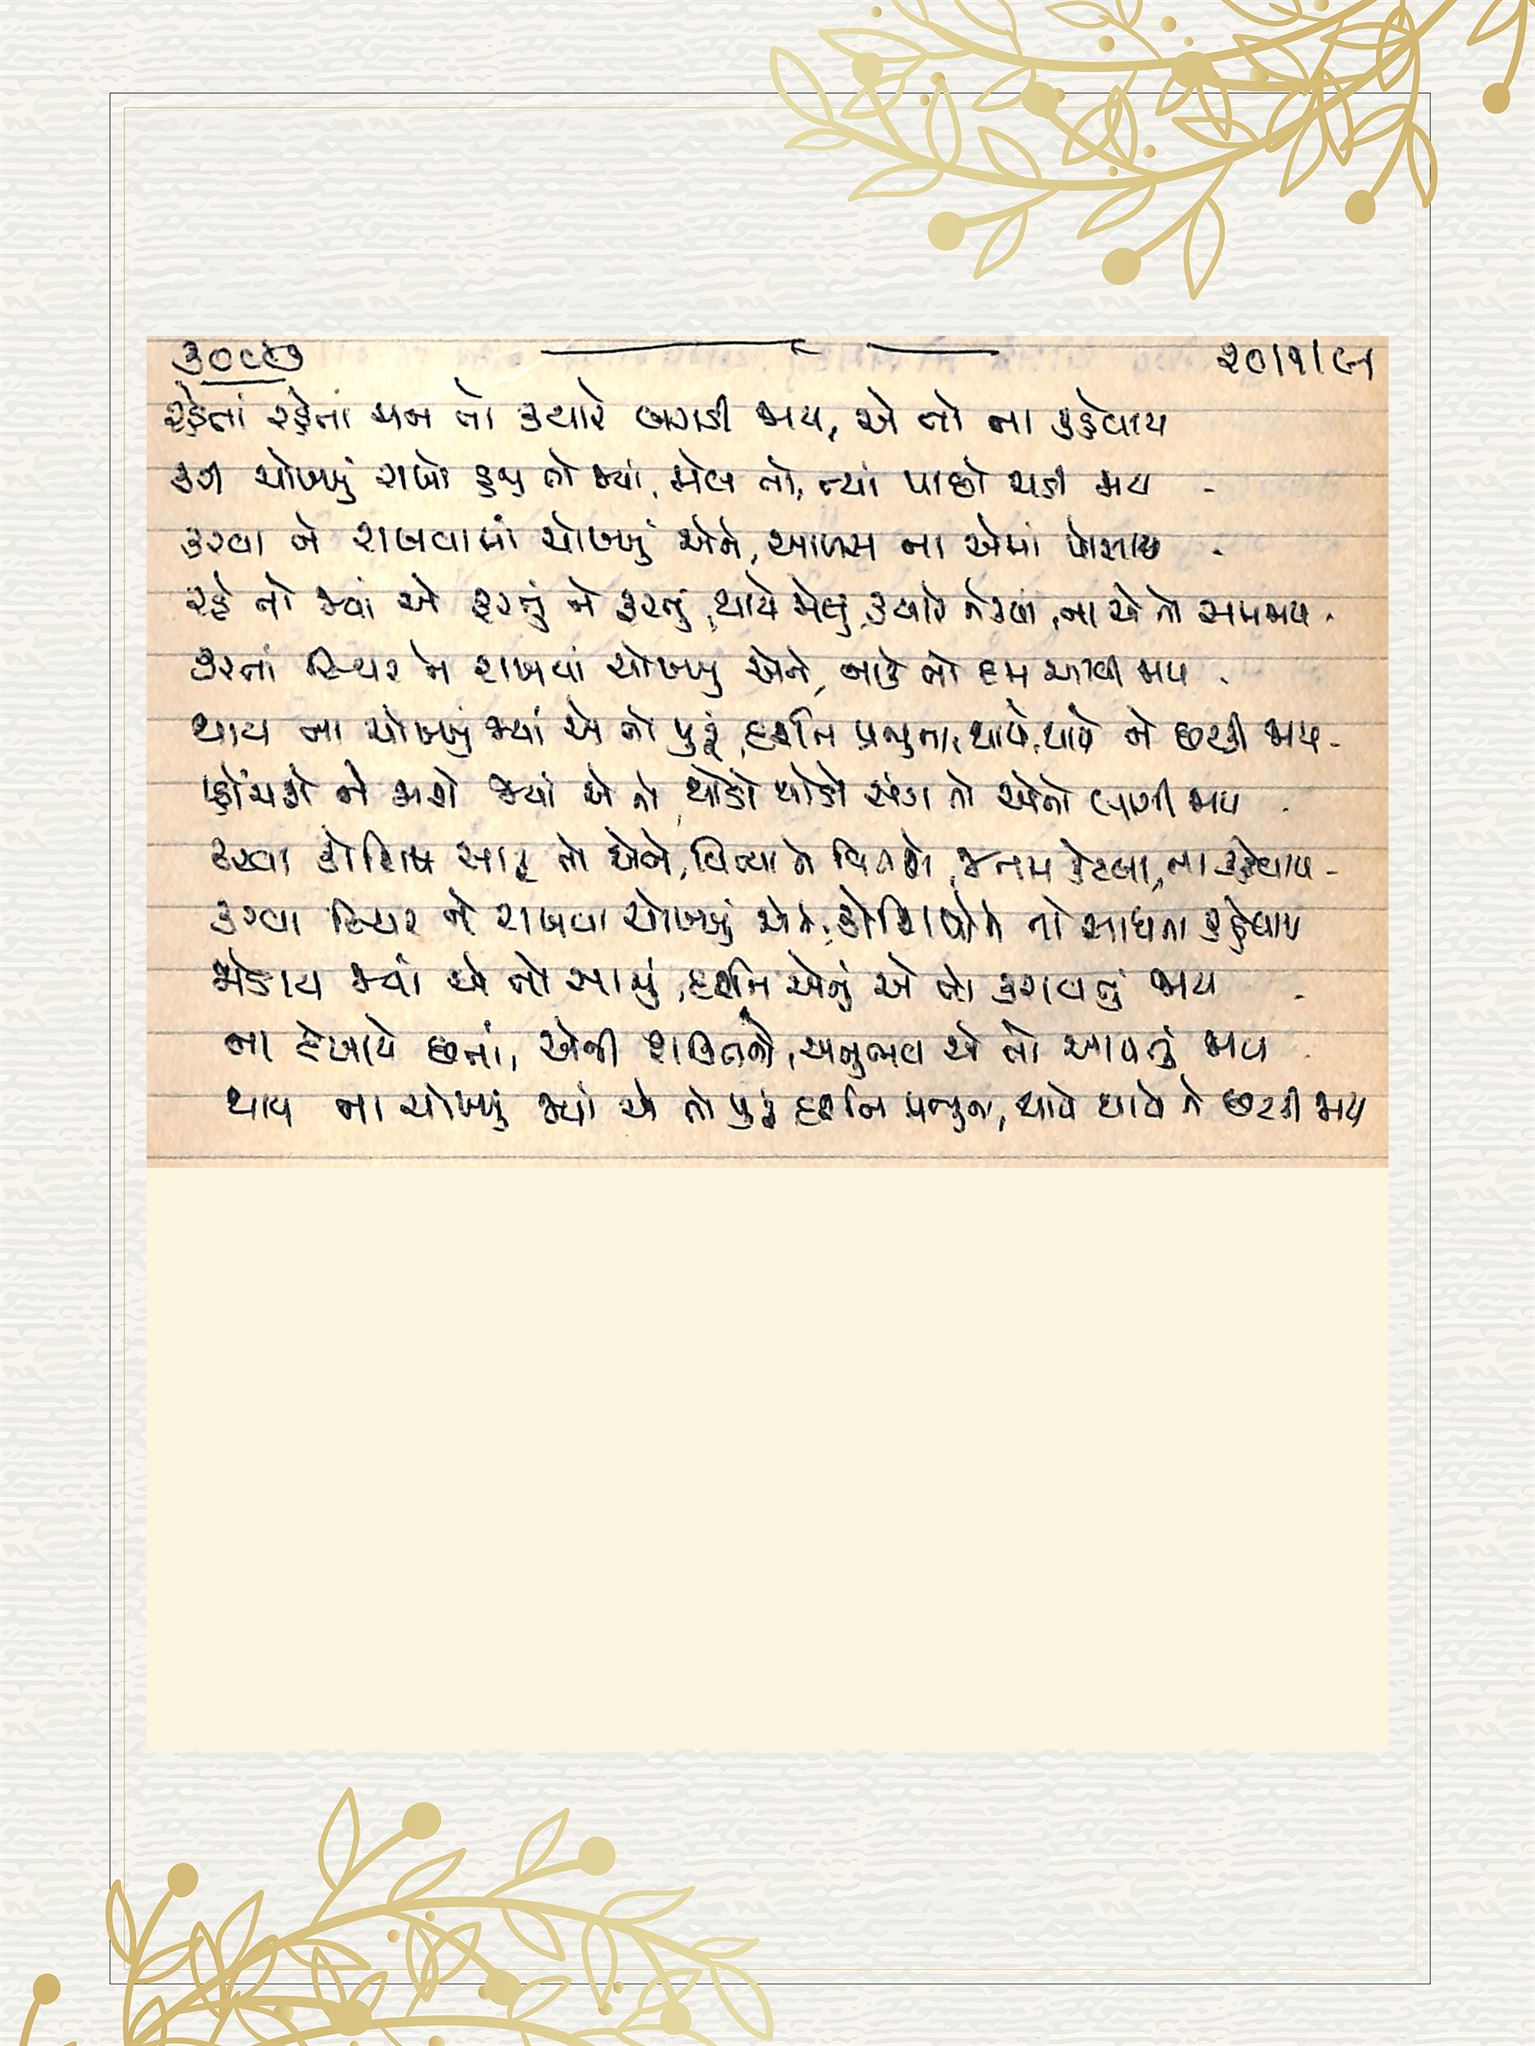 ૩૦૯૭ ૨૦/૧/૯૧
રહેતાં રહેતાં મન તો ક્યારે બગડી જાય, એ તો ના કહેવાય
કરી ચોખ્ખું રાખો હજુ તો જ્યાં, મેલ તો, ત્યાં પાછો ચડી જાય -
કરવા ને રાખવામાં ચોખ્ખું એને, આળસ ના એમાં પોસાય -
રહે તો જ્યાં એ ફરતું ને ફરતું, થાયે મેલું ક્યારે ને ક્યાં, ના એ તો સમજાય -
કરતાં સ્થિર ને રાખવાં ચોખ્ખું એને, નાકે તો દમ આવી જાય -
થાય ના ચોખ્ખું જ્યાં એ તો પુરૂં, દર્શન પ્રભુના, થાયે થાયે ને છટકી જાય -
પ્હોંચશે ને જાશે જ્યાં એ તો, થોડો થોડો સંગ તો એનો લાગી જાય -
કરવા કોશિષ સારૂ તો એને, વિત્યા ને વિતશે, જનમ કેટલા, ના કહેવાય -
કરવા સ્થિર ને રાખવા ચોખ્ખું એને, કોશિષોને તો સાધના કહેવાય
જોડાય જ્યાં એ તો સાચું, દર્શન એનું એ તો કરાવતું જાય -
ના દેખાયે છતાં, એની શક્તિનો, અનુભવ એ તો આપતું જાય -
થાય ના ચોખ્ખું જ્યાં એ તો પુરૂં દર્શન પ્રભુના, થાયે થાયે ને છટકી જાય